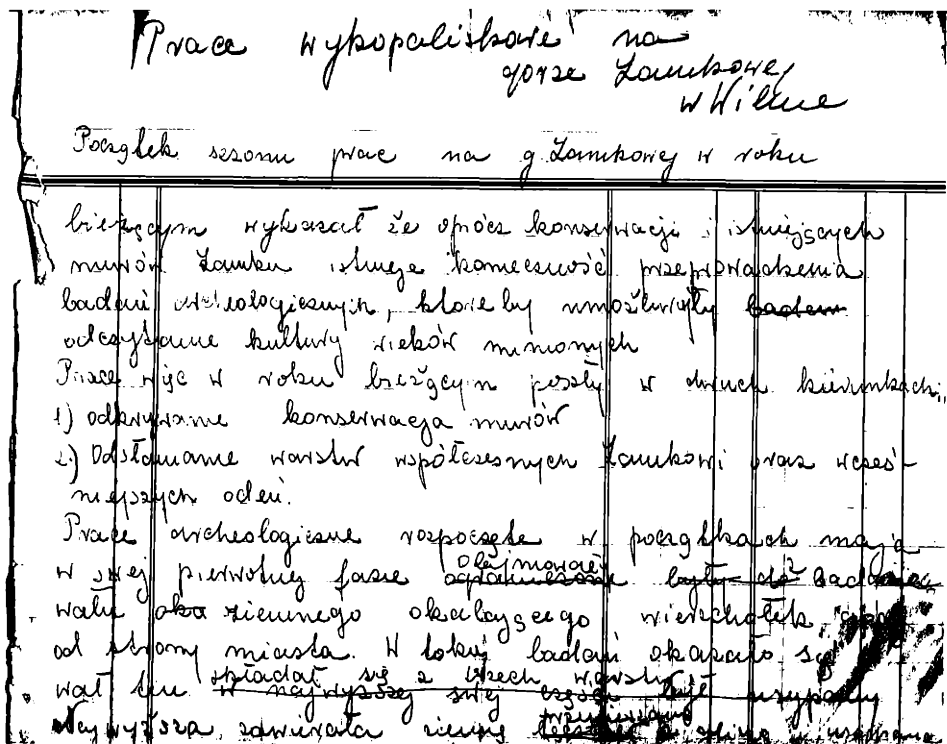 Prace wykopaliskowe na
gorze Zamkowej
w Wilnie
Początek sezonu prac na g. Zamkowej w roku
bieżącym wykazał że oprócz konserwacji istniejących
murów Zamku istnieje konieczność przeprowadzenia
badań archeologicznych, ktore by umożliwiły badan
odczytanie kultury wieków minionych
Prace więc w roku bieżącym poszły w dwuch kierunkach,
1) odkrywanie konserwacja murów
2) Odsłanianie warstw współczesnych Zamkowi oraz wcześ-
niejszych odeń.
Prace archeologiczne rozpoczęte w początkach maja
w swej pierwotnej fasie obejmować były do badania
wału oka ziemnego okalającego wierzchołek
od strony miasta. W toku badań okazało się
wał ten składał się z trzech warstw
w najwyższej swej części był usypany
Najwyższa zawierała ziemię